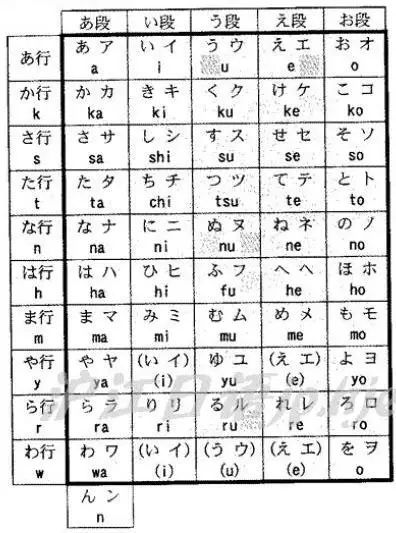 あ段 い段 う段 え段 お段
あ行 あ ア い イ う ウ え エ お オ
a i u e o
か行 か カ き キ く ク け ケ こ コ
k ka ki ku ke ko
さ行 さ サ し シ す ス せ セ そ ソ
s sa shi su se so
た行 た タ ち チ つ ツ て テ と ト
t ta chi tsu te to
な行 な ナ に ニ ぬ ヌ ね ネ の ノ
n na ni nu ne no
は行 は ハ ひ ヒ ふ フ へ ヘ ほ ホ
h ha hi fu he ho
ま行 ま マ み ミ む ム め メ も モ
m ma mi mu me mo
や行 や ヤ (い イ) ゆ ユ (え エ) よ ヨ
y ya (i) yu (e) yo
ら行 ら ラ り リ る ル れ レ ろ ロ
r ra ri ru re ro
わ行 わ ワ (い イ) (う ウ) (え エ) を ヲ
w wa (i) (u) (e) o
ん ン
n